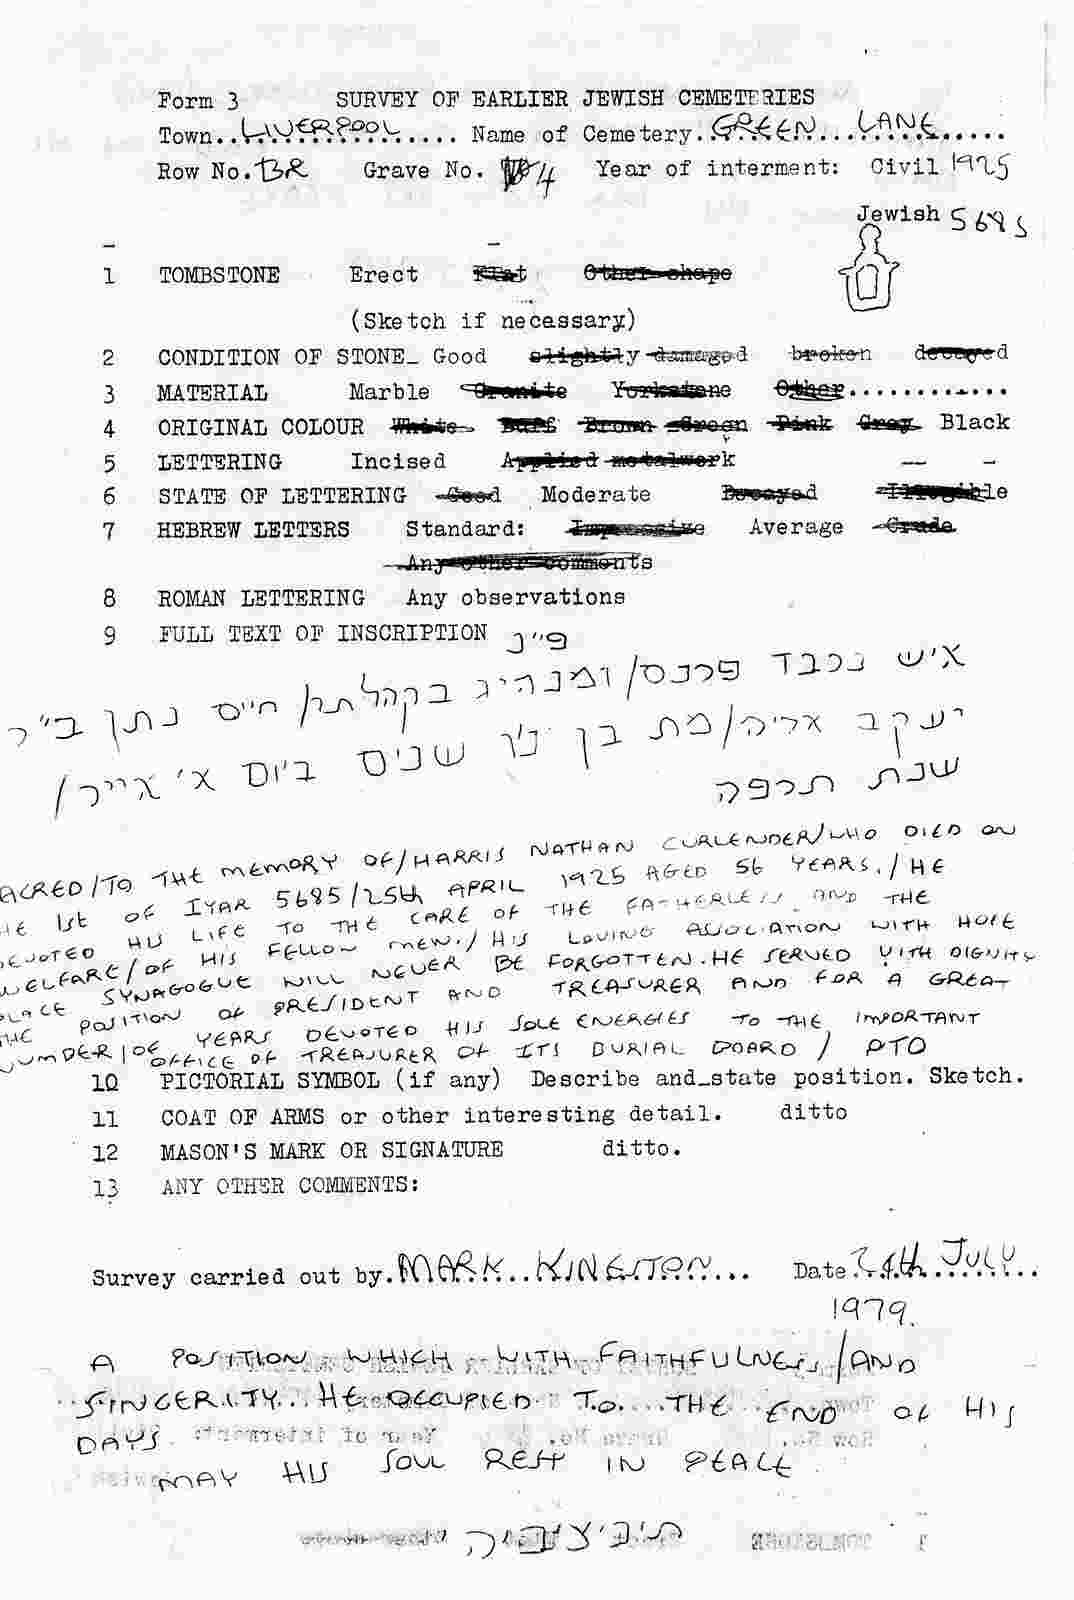 Form 3 SURVEY OF EARLIER JEWISH CEMETERIES
Town..LIVERPOOL.... Name of Cemetery..GREEN...LANE.....
Row No. BR Grave No. 4 Year of interment: Civil 1925
Jewish 5685
1 TOMBSTONE Erect Flat Other shape
(Sketch if necessary)
2 CONDITION OF STONE_ Good slightly damaged broken decayed
3 MATERIAL Marble Granite Yorkstone Other............
4 ORIGINAL COLOUR White Buff Brown Green Pink Grey Black
5 LETTERING Incised Applied metalwork
6 STATE OF LETTERING Good Moderate Decayed Illegible
7 HEBREW LETTERS Standard: Impressive Average Crude
Any other comments
8 ROMAN LETTERING Any observations
9 FULL TEXT OF INSCRIPTION פ״נ
איש נכבד פרנס/ומנהיג בקהלתו/חיים נתן ב״ר
יעקב אריה/מת בן נ״ו שנים ביום א׳ אייר/
שנת תרפה
ACRED/TO THE MEMORY OF/HARRIS NATHAN CURLENDER/WHO DIED ON
HE 1st OF IYAR 5685/25th APRIL 1925 AGED 56 YEARS./HE
DEVOTED HIS LIFE TO THE CARE OF THE FATHERLESS AND THE
WELFARE/OF HIS FELLOW MEN./HIS LOVING ASSOCIATION WITH HOPE
PLACE SYNAGOGUE WILL NEVER BE FORGOTTEN. HE SERVED WITH DIGNITY
THE POSITION OF PRESIDENT AND TREASURER AND FOR A GREAT
UMBER/OF YEARS DEVOTED HIS SOLE ENERGIES TO THE IMPORTANT
OFFICE OF TREASURER OF ITS BURIAL BOARD / PTO
10 PICTORIAL SYMBOL (if any) Describe and_state position. Sketch.
11 COAT OF ARMS or other interesting detail. ditto
12 MASON'S MARK OR SIGNATURE ditto.
13 ANY OTHER COMMENTS:
Survey carried out by. MARK KINGSTON... Date 24th JULY
1979.
A POSITION WHICH WITH FAITHFULNESS/AND
SINCERITY HE OCCUPIED TO THE END OF HIS
DAYS
MAY HIS SOUL REST IN PEACE